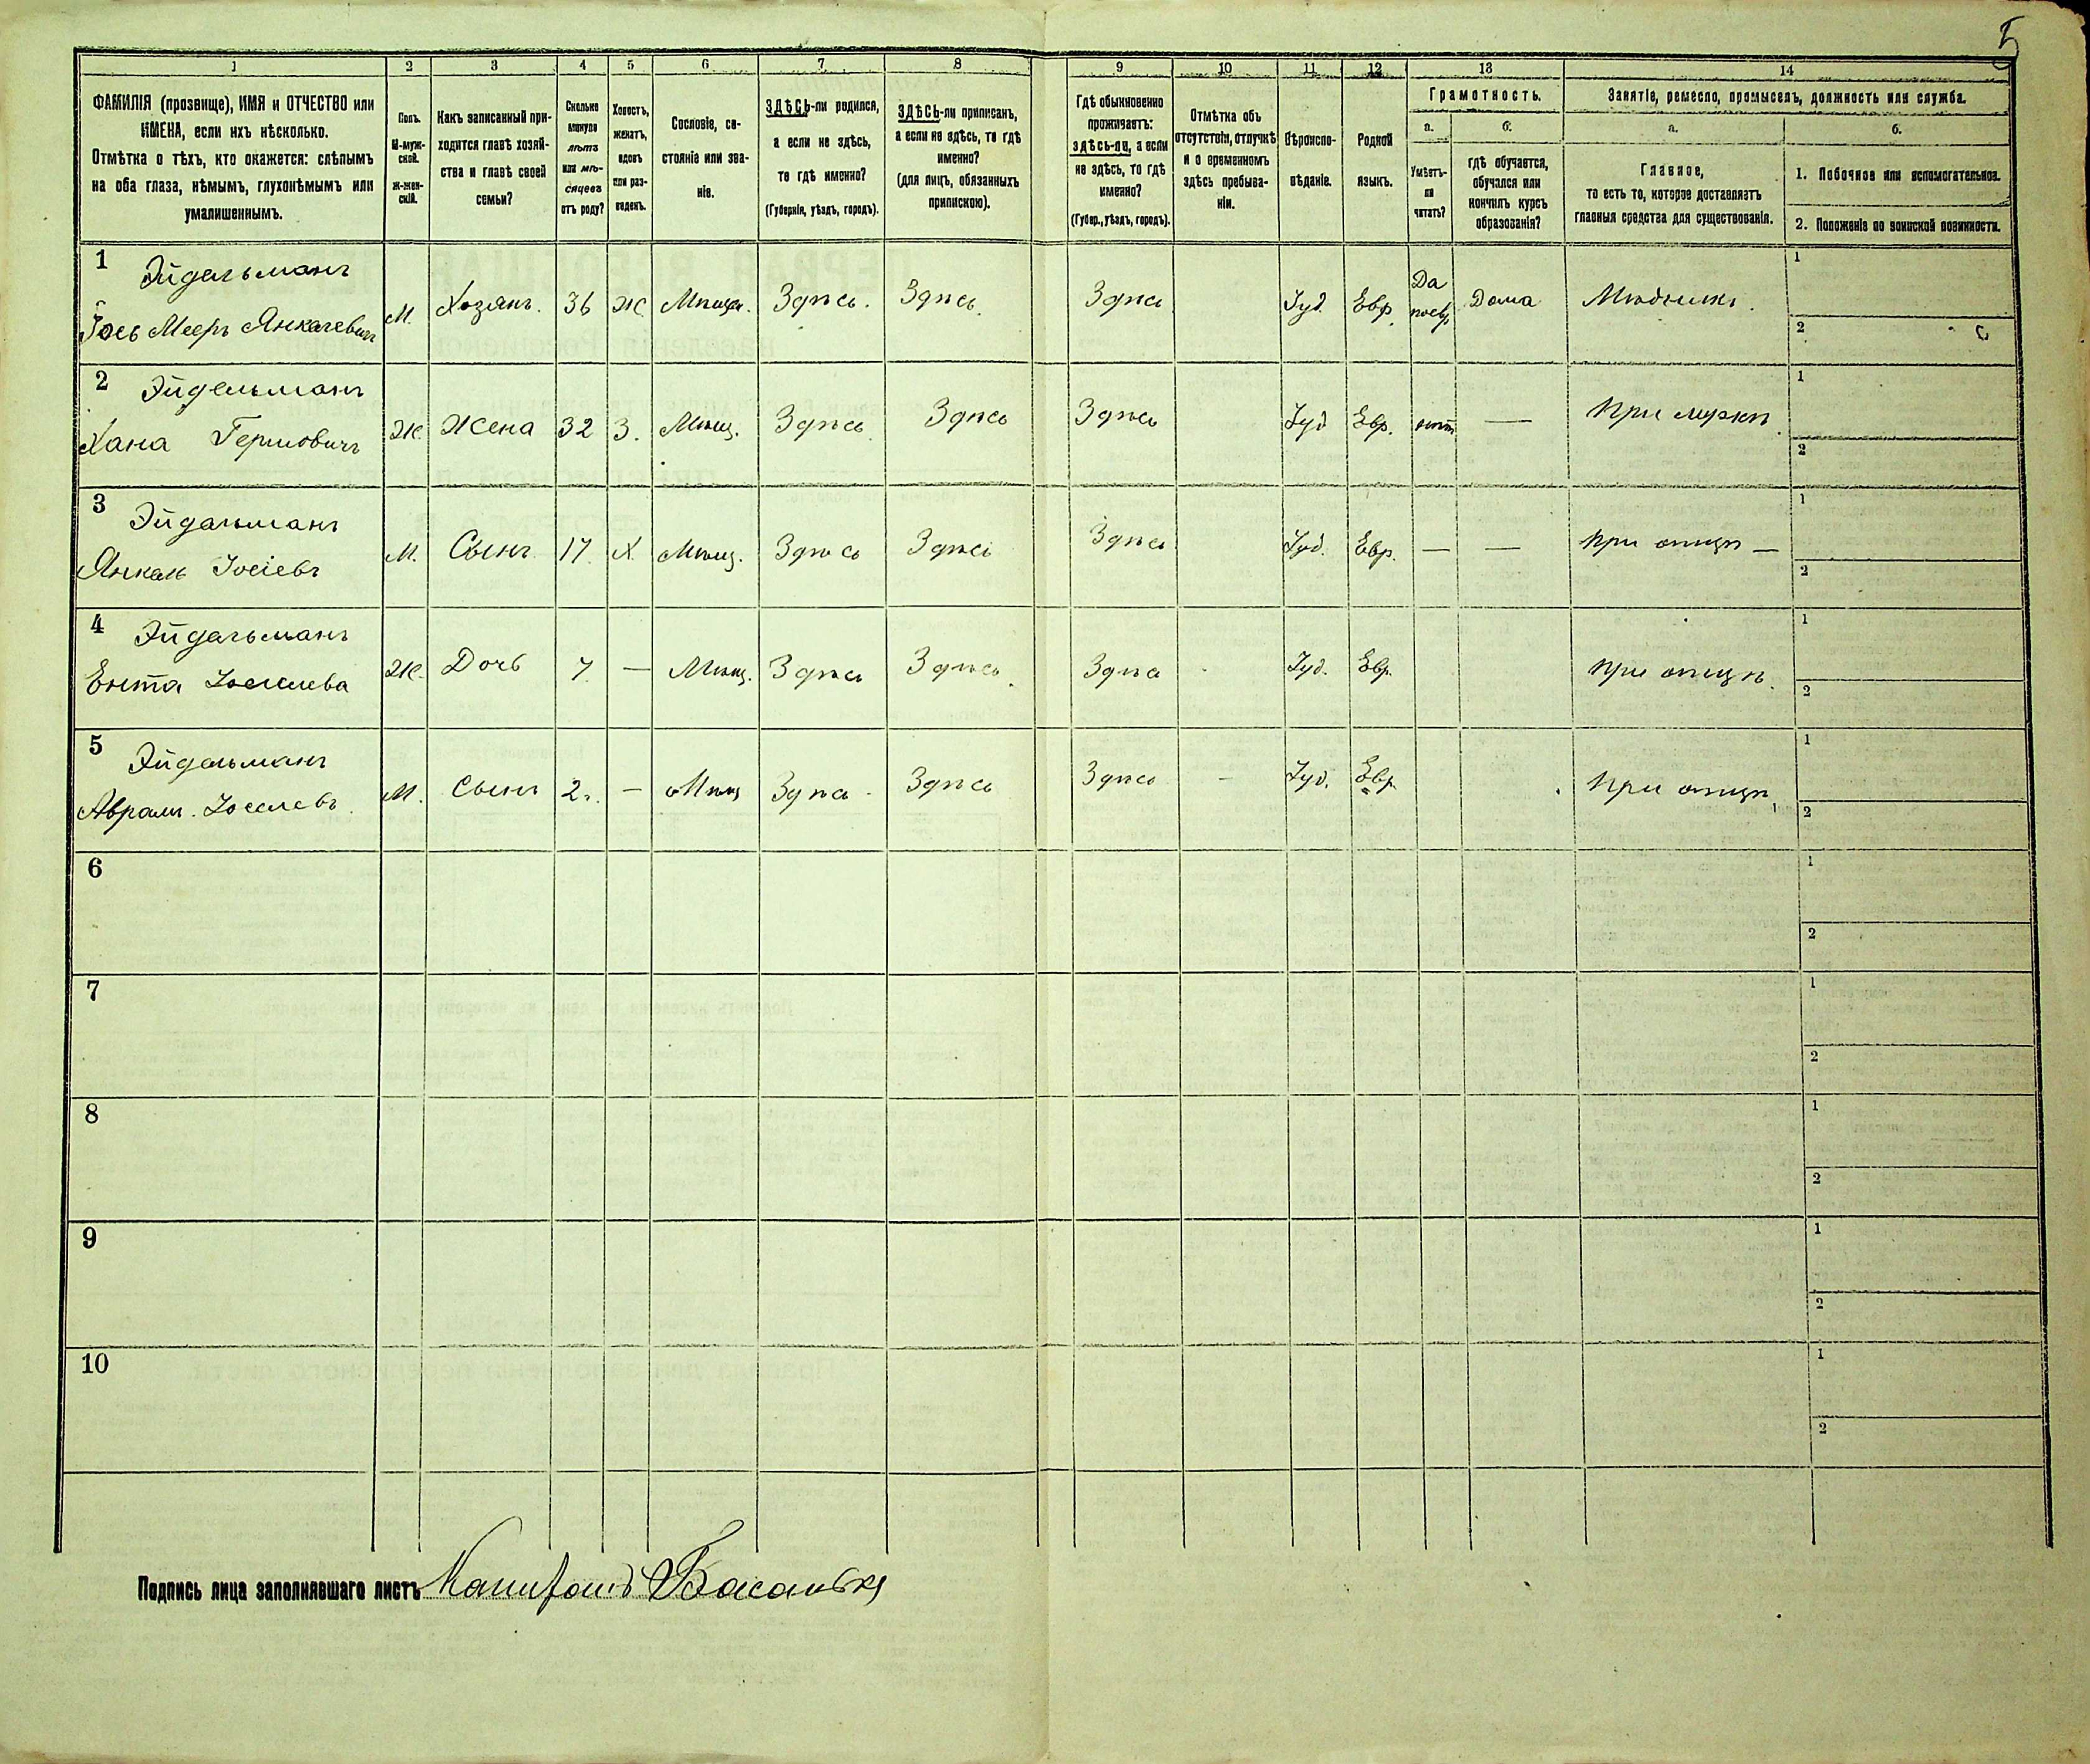 5
1 2 3 4 5 6 7 8 9 10 11 12 13 14
ФАМИЛІЯ (прозвище), ИМЯ и ОТЧЕСТВО или
ИМЕНА, если ихъ нѣсколько.
Отмѣтка о тѣхъ, кто окажется: слѣпымъ
на оба глаза, нѣмымъ, глухонѣмымъ или
умалишеннымъ.
Полъ.
М-муж-
ской.
ж-жен-
скій.
Какъ записанный при-
ходится главѣ хозяй-
ства и главѣ своей
семьи?
Сколько
минуло
лѣтъ
или мѣ-
сяцевъ
отъ роду?
Холостъ,
женатъ,
вдовъ
или раз-
веденъ.
Сословіе, со-
стояніе или зва-
ніе.
ЗДѢСЬ-ли родился,
а если не здѣсь,
то гдѣ именно?
(Губернія, уѣздъ, городъ).
ЗДѢСЬ-ли приписан,
а если не здѣсь, то гдѣ
именно?
(для лицъ, обязанныхъ
припискою).
Гдѣ обыкновенно
проживаетъ:
здѣсь-ли, а если
не здѣсь, то гдѣ
именно?
(Губер., уѣздъ, городъ).
Отмѣтка объ
отсутствіи, отлучкѣ
и о временномъ
здѣсь пребыва-
ніи.
Вѣроиспо-
вѣданіе.
Родной
языкъ.
Грамотность.
а.
Умѣетъ-
ли
читать?
б.
гдѣ обучается,
обучался или
кончилъ курсъ
образованія?
Занятіе, ремесло, промыселъ, должность или служба.
а.
Главное,
то есть то, которое доставляетъ
главныя средства для существованія.
б.
1. Побочное или вспомогательное.
2. Положеніе по воинской повинности.
1 Эйдельманъ
Іось Мееръ Янкелевичъ М. Хозяинъ. 36 Ж Мѣщан. Здѣсь. Здѣсь. Здѣсь Іуд. Евр. Да Дома Мѣдникъ.
1
2
2 Эйдельманъ
Хана Ж. Жена 32 З. Мѣщ. Здѣсь Здѣсь Здѣсь Іуд Евр. нѣтъ — При мужѣ
1
2
3 Эйдельманъ
Янкель Іосіевъ М. Сынъ 17 Х Мѣщ. Здѣсь Здѣсь Здѣсь Іуд. Евр. — — При отцѣ —
1
2
4 Эйдельманъ
Ента Іоселева Ж. Дочь 7 — Мѣщ. Здѣсь Здѣсь. Здѣсь Іуд. Евр. При отцѣ.
1
2
5 Эйдельманъ
Аврам. Іоселевъ М. Сынъ 2 г. — Мѣщ Здѣсь Здѣсь Здѣсь - Іуд. Евр. При отцѣ
1
2
6
1
2
7
1
2
8
1
2
9
1
2
10
1
2
Подпись лица заполнявшаго листъ